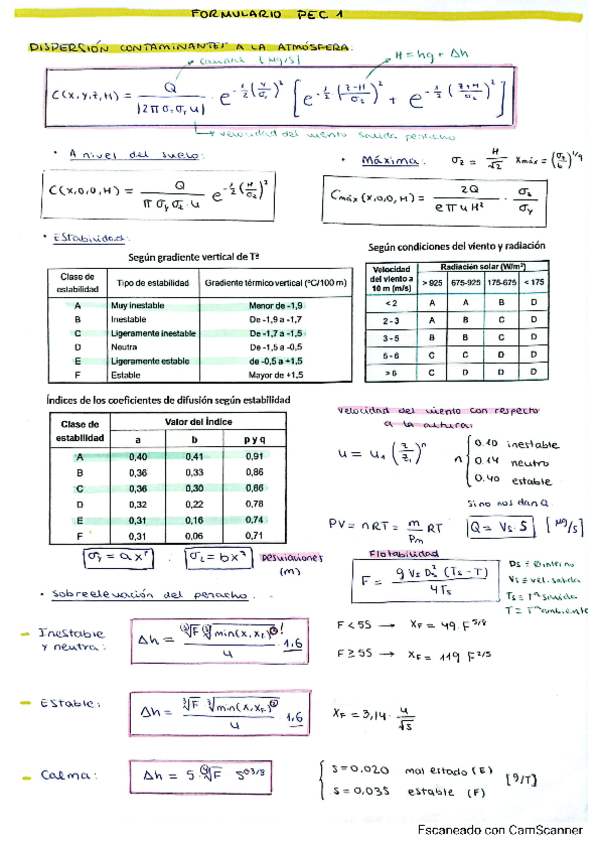 FORMULARIO PEC 1
DISPERSIÓN CONTAMINANTES A LA ATMÓSFERA:
caudal (µg/s)
H = hg + Δh
C(x,y,z,H) = Q / |2π σ σy u| · e^(-1/2 (y/σy)²) [e^(-1/2 (z-H/σz)²) + e^(-1/2 (z+H/σz)²)]
velocidad del viento salida penacho
• A nivel del suelo:
• Máxima: σz = H/√2 xmáx = (σz/b)^1/q
C(x,0,0,H) = Q / π σy σz · u e^(-1/2 (H/σz)²)
Cmáx(x,0,0,H) = 2Q / e π u H² · σz/σy
• Estabilidad:
Según gradiente vertical de Tª
Según condiciones del viento y radiación
Clase de estabilidad Tipo de estabilidad Gradiente térmico vertical (°C/100 m)
A Muy inestable Menor de -1,9
B Inestable De -1,9 a -1,7
C Ligeramente inestable De -1,7 a -1,5
D Neutra De -1,5 a -0,5
E Ligeramente estable de -0,5 a +1,5
F Estable Mayor de +1,5
Velocidad del viento a 10 m (m/s) Radiación solar (W/m²)
> 925 675-925 175-675 < 175
< 2 A A B D
2 - 3 A B C D
3 - 5 B B C D
5 - 6 C C D D
> 6 C D D D
Índices de los coeficientes de difusión según estabilidad
Clase de estabilidad Valor del índice
a b p y q
A 0,40 0,41 0,91
B 0,36 0,33 0,86
C 0,36 0,30 0,86
D 0,32 0,22 0,78
E 0,31 0,16 0,74
F 0,31 0,06 0,71
σy = a x^p ; σz = b x^q Desviaciones (m)
Velocidad del viento con respecto
a la altura:
u = u₁ (z/z₁)^n n { 0.10 inestable
0.14 neutro
0.40 estable
Si no nos dan Q
PV = nRT = m/Pm RT Q = Vs · S [µg/s]
Flotabilidad
F = g Vs Ds² (Ts - T) / 4Ts
Ds = Ø interno
Vs = vel. salida
Ts = Tª salida
T = Tª ambiente
• Sobreelevación del penacho:
Inestable
y neutra:
F < 55 → XF = 49 · F^5/8
F ≥ 55 → XF = 119 F^2/5
Estable:
XF = 3,14 · u/√s
Calma: Δh = 5 ∜F · S^03/8
S = 0,020 mol estado (E)
S = 0,035 estable (F)
[g/T]
Escaneado con CamScanner